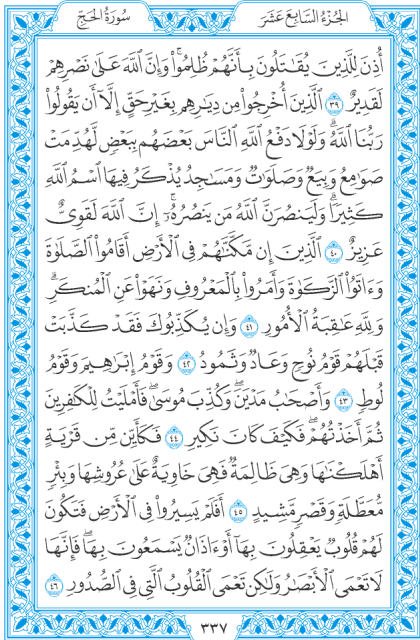 الجزء السابع عشر
سورة الحج
أُذِنَ لِلَّذِينَ يُقَٰتَلُونَ بِأَنَّهُمْ ظُلِمُوا۟ ۚ وَإِنَّ ٱللَّهَ عَلَىٰ نَصْرِهِمْ
لَقَدِيرٌ ٣٩ ٱلَّذِينَ أُخْرِجُوا۟ مِن دِيَٰرِهِم بِغَيْرِ حَقٍّ إِلَّآ أَن يَقُولُوا۟
رَبُّنَا ٱللَّهُ ۗ وَلَوْلَا دَفْعُ ٱللَّهِ ٱلنَّاسَ بَعْضَهُم بِبَعْضٍ لَّهُدِّمَتْ
صَوَٰمِعُ وَبِيَعٌ وَصَلَوَٰتٌ وَمَسَٰجِدُ يُذْكَرُ فِيهَا ٱسْمُ ٱللَّهِ
كَثِيرًا ۗ وَلَيَنصُرَنَّ ٱللَّهُ مَن يَنصُرُهُۥٓ ۗ إِنَّ ٱللَّهَ لَقَوِىٌّ
عَزِيزٌ ٤٠ ٱلَّذِينَ إِن مَّكَّنَّٰهُمْ فِى ٱلْأَرْضِ أَقَامُوا۟ ٱلصَّلَوٰةَ
وَءَاتَوُا۟ ٱلزَّكَوٰةَ وَأَمَرُوا۟ بِٱلْمَعْرُوفِ وَنَهَوْا۟ عَنِ ٱلْمُنكَرِ ۗ
وَلِلَّهِ عَٰقِبَةُ ٱلْأُمُورِ ٤١ وَإِن يُكَذِّبُوكَ فَقَدْ كَذَّبَتْ
قَبْلَهُمْ قَوْمُ نُوحٍ وَعَادٌ وَثَمُودُ ٤٢ وَقَوْمُ إِبْرَٰهِيمَ وَقَوْمُ
لُوطٍ ٤٣ وَأَصْحَٰبُ مَدْيَنَ ۖ وَكُذِّبَ مُوسَىٰ فَأَمْلَيْتُ لِلْكَٰفِرِينَ
ثُمَّ أَخَذْتُهُمْ ۖ فَكَيْفَ كَانَ نَكِيرِ ٤٤ فَكَأَيِّن مِّن قَرْيَةٍ
أَهْلَكْنَٰهَا وَهِىَ ظَالِمَةٌ فَهِىَ خَاوِيَةٌ عَلَىٰ عُرُوشِهَا وَبِئْرٍ
مُّعَطَّلَةٍ وَقَصْرٍ مَّشِيدٍ ٤٥ أَفَلَمْ يَسِيرُوا۟ فِى ٱلْأَرْضِ فَتَكُونَ
لَهُمْ قُلُوبٌ يَعْقِلُونَ بِهَآ أَوْ ءَاذَانٌ يَسْمَعُونَ بِهَا ۖ فَإِنَّهَا
لَا تَعْمَى ٱلْأَبْصَٰرُ وَلَٰكِن تَعْمَى ٱلْقُلُوبُ ٱلَّتِى فِى ٱلصُّدُورِ ٤٦
٣٣٧